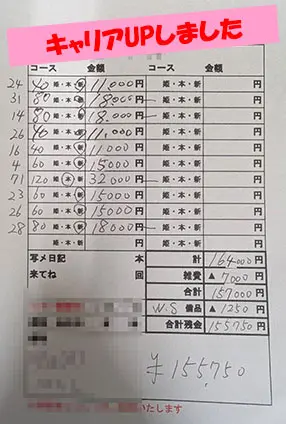 キャリアUPしました
コース 金額 コース 金額
24 40 姫・本・新 11,000円 姫・本・新 円
31 80 姫・本・新 18,000円 姫・本・新 円
14 80 姫・本・新 18,000円 姫・本・新 円
26 40 姫・本・新 11,000円 姫・本・新 円
16 40 姫・本・新 11000円 姫・本・新 円
4 60 姫・本・新 15000円 姫・本・新 円
71 120 姫・本・新 32000円 姫・本・新 円
23 60 姫・本・新 15000円 姫・本・新 円
26 60 姫・本・新 15000円 姫・本・新 円
28 80 姫・本・新 18000円 姫・本・新 円
姫・本・新 円 姫・本・新 円
写メ日記 本 計 164000円
来てね 回 雑費 ▲ 7000円
合計 157000円
W.S 備品 ▲ 1250円
合計残金 155750円
¥155,750
いたします